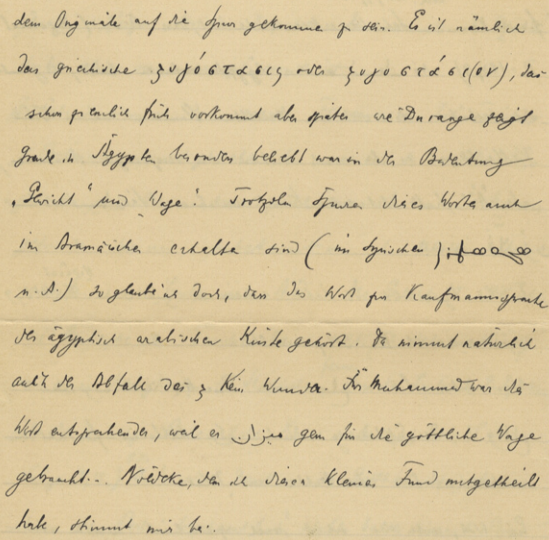 dem Originale auf die Spur gekommen zu sein. Es ist nämlich
das griechische ζυγόστασις oder ζυγοστάσι(ον), das
schon ziemlich früh vorkommt aber später wie Ducange zeigt
grade in Ägypten besonders beliebt war in der Bedeutung
„Gewicht" und „Wage". Trotzdem Spuren dieses Wortes auch
im Aramäischen erhalten sind (im Syrischen
u. A.) so glaube ich doch, dass das Wort zur Kaufmannssprache
der ägyptisch arabischen Küste gehört. Da nimmt natürlich
auch der Abfall des ζ kein Wunder. Für Muhammed war das
Wort entsprechender, weil er ميزان gern für die göttliche Wage
gebraucht. Nöldeke, dem ich diesen kleinen Fund mitgetheilt
habe, stimmt mir bei.